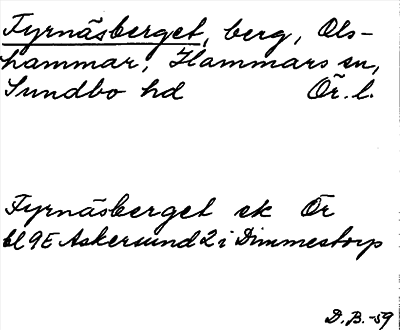 Fyrnäsberget, berg, Ols-
hammar, Hammars sn,
Sundbo hd Ör. l.
Fyrnäsberget ek Ör
bl 9E Askersund 2 i Dimmestorp
D.B.-59